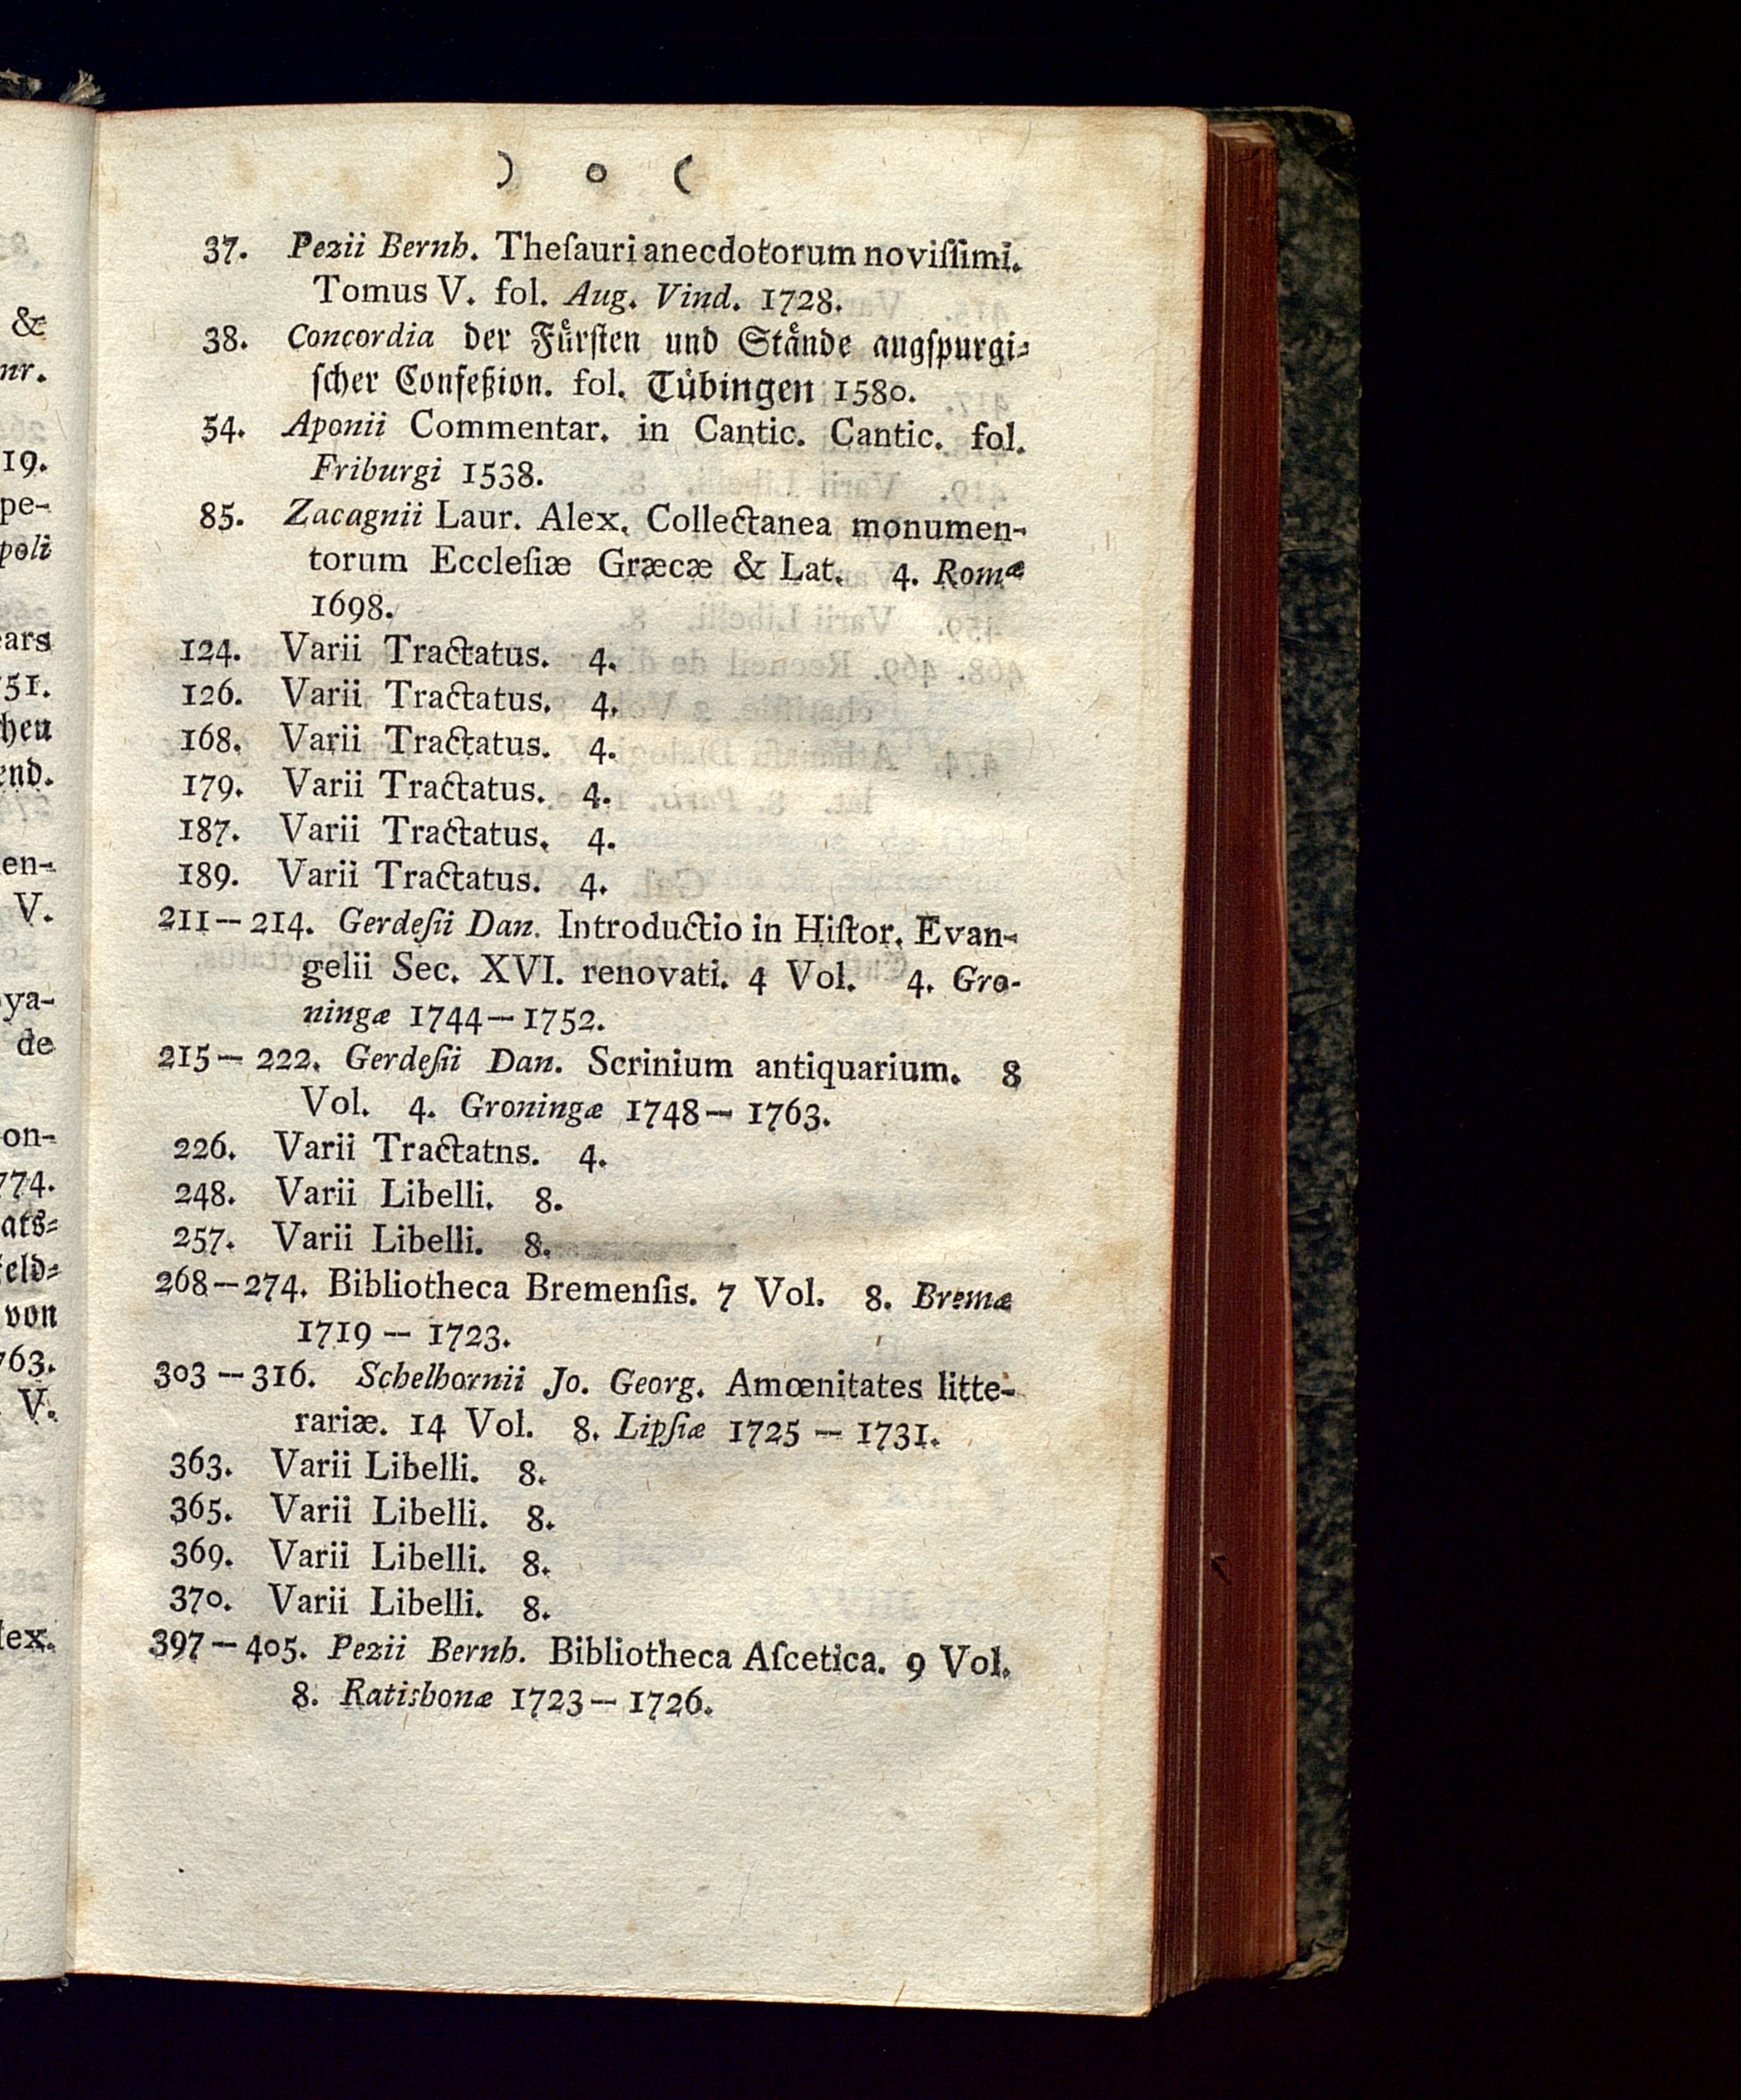 &
nr.
19.
pe-
poli
ears
751.
chen
end.
en-
V.
ya-
de
on-
774.
ats-
feld-
von
763.
V.
lex.
) o (
37. Pezii Bernh. Theſauri anecdotorum noviſſimi.
Tomus V. fol. Aug. Vind. 1728.
38. Concordia der Fuͤrſten und Staͤnde augſpurgi-
ſcher Confeßion. fol. Tübingen 1580.
54. Aponii Commentar. in Cantic. Cantic. fol.
Friburgi 1538.
85. Zacagnii Laur. Alex. Collectanea monumen-
torum Eccleſiæ Græcæ & Lat. 4. Romæ
1698.
124. Varii Tractatus. 4.
126. Varii Tractatus. 4.
168. Varii Tractatus. 4.
179. Varii Tractatus. 4.
187. Varii Tractatus. 4.
189. Varii Tractatus. 4.
211—214. Gerdeſii Dan. Introductio in Hiſtor. Evan-
gelii Sec. XVI. renovati. 4 Vol. 4. Gro-
ningæ 1744—1752.
215—222. Gerdeſii Dan. Scrinium antiquarium. 8
Vol. 4. Groningæ 1748—1763.
226. Varii Tractatns. 4.
248. Varii Libelli. 8.
257. Varii Libelli. 8.
268—274. Bibliotheca Bremenſis. 7 Vol. 8. Bremæ
1719—1723.
303—316. Schelhornii Jo. Georg. Amœnitates litte-
rariæ. 14 Vol. 8. Lipſiæ 1725—1731.
363. Varii Libelli. 8.
365. Varii Libelli. 8.
369. Varii Libelli. 8.
370. Varii Libelli. 8.
397—405. Pezii Bernh. Bibliotheca Aſcetica. 9 Vol.
8. Ratisbonæ 1723—1726.